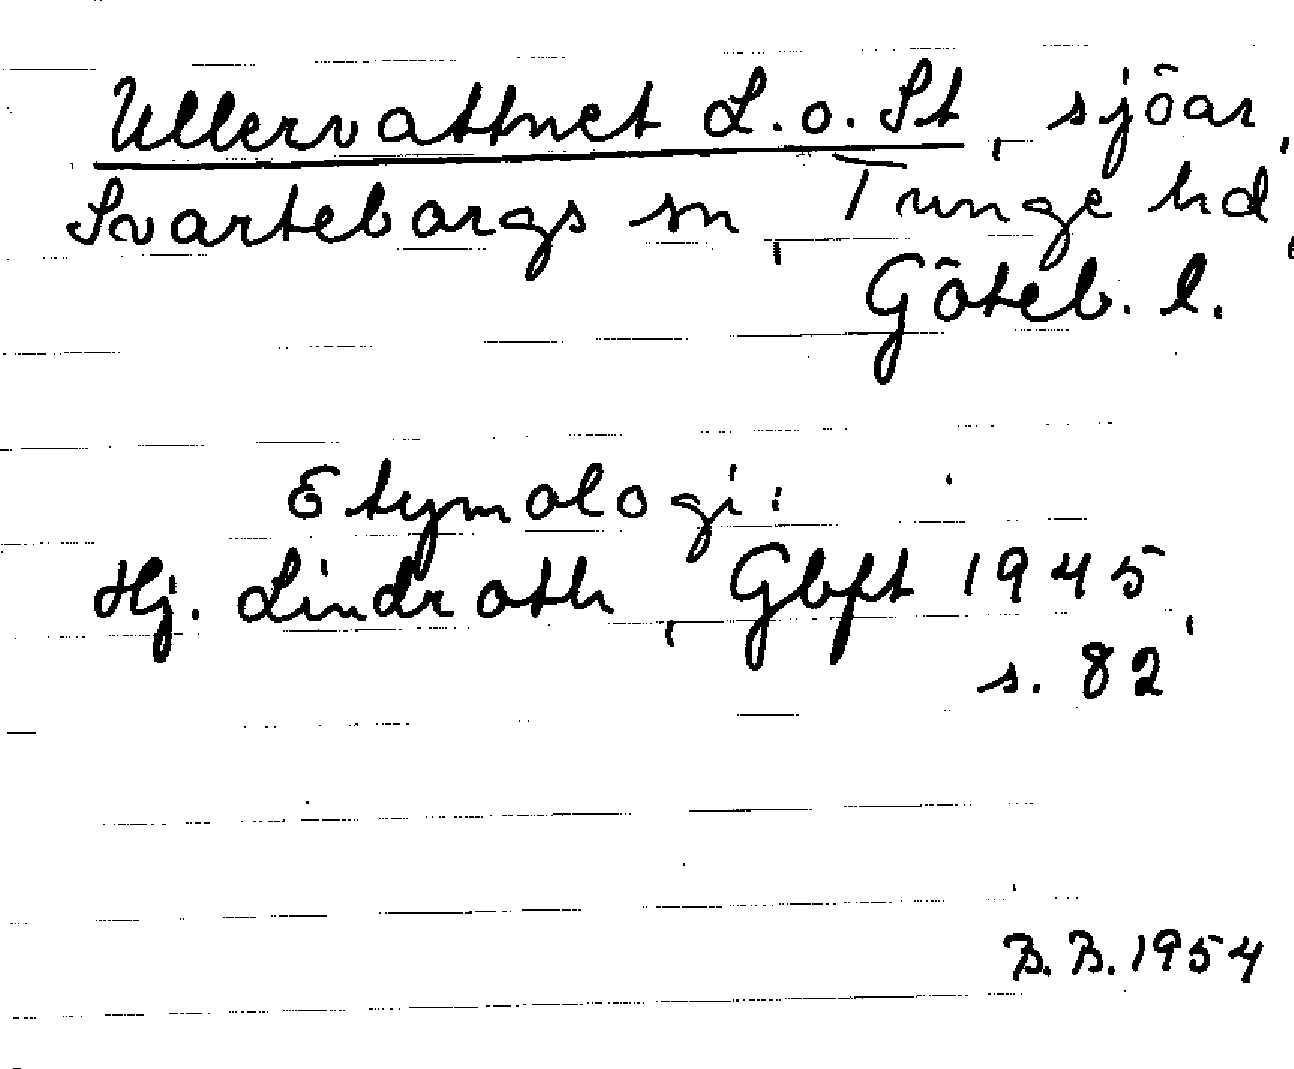 Ullervattnet L.o. St, sjöar,
Svarteborgs sn, Tunge hd,
Göteb. l.
Etymologi:
Hj. Lindroth, Gbft 1945,
s. 82
B. B. 1954